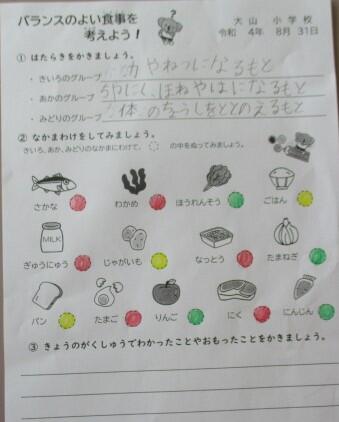 バランスのよい食事を
考えよう!
大山小学校
令和 4年 8月 31日
① はたらきをかきましょう。
・きいろのグループ 力やねつになるもと
・あかのグループ ちやにく、ほねやはになるもと
・みどりのグループ 体のちょうしをととのえるもと
② なかまわけをしてみましょう。
きいろ、あか、みどりのなかまにわけて、 の中をぬってみましょう。
さかな わかめ ほうれんそう ごはん
MILK
ぎゅうにゅう じゃがいも なっとう たまねぎ
パン たまご りんご にく にんじん
③ きょうのがくしゅうでわかったことやおもったことをかきましょう。